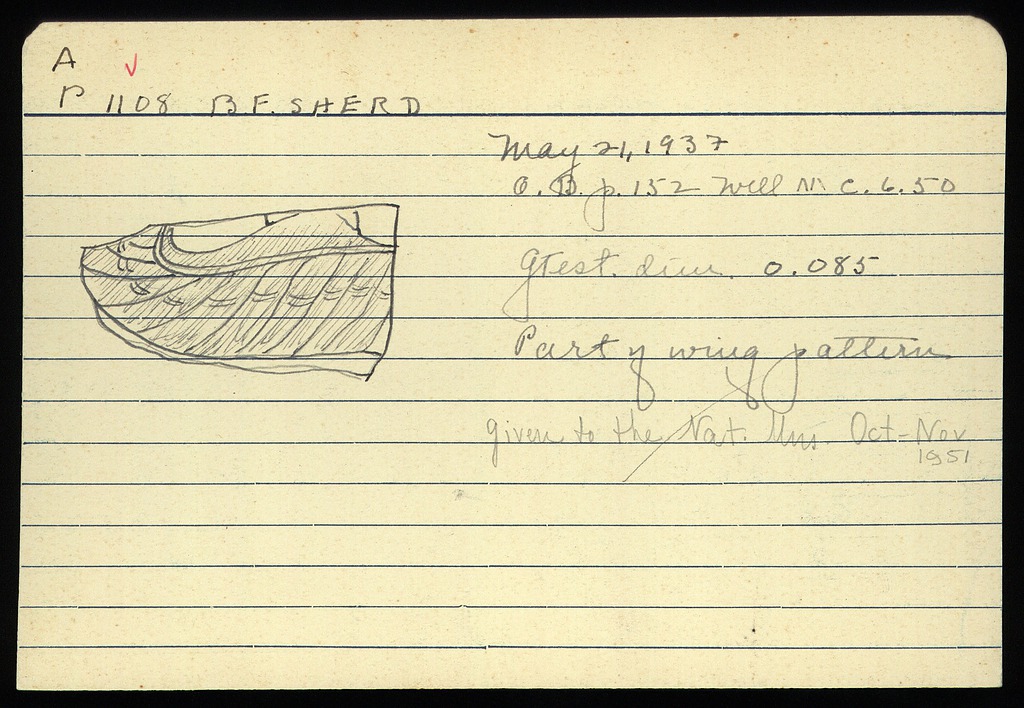 A
P 1108 B.F. SHERD
May 21, 1937
O.B. p. 152 Well M c. 6.50
Gtest. dim. 0.085
Part of wing pattern
given to the Nat. Mus. Oct-Nov
1951